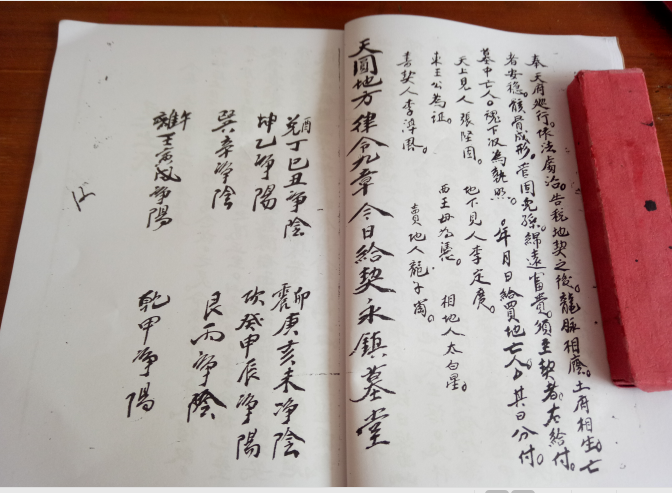 奉天府处行。依法處治。告税地契之後。龍脉相應。土府相生。亡
者安穏。骸骨成形。管国児孫綿遠富貴。須至執者。右給付。
墓中亡人。魂下收為執照。。年月日給買地亡人厶其日分付。
天上見人張堅固。地下見人李定度。
東王公為証。西王母為憑。相地人太白星。
書契人李淳風。賣地人龍子崗。
天圓地方律令九章今日給契永鎮墓堂
酉
兌丁巳丑净陰
卯
震庚亥未净陰
坤乙净陽
坎癸甲辰净陽
巽辛净陰
艮丙净陰
午
離壬寅戌净陽
乾甲净陽
12